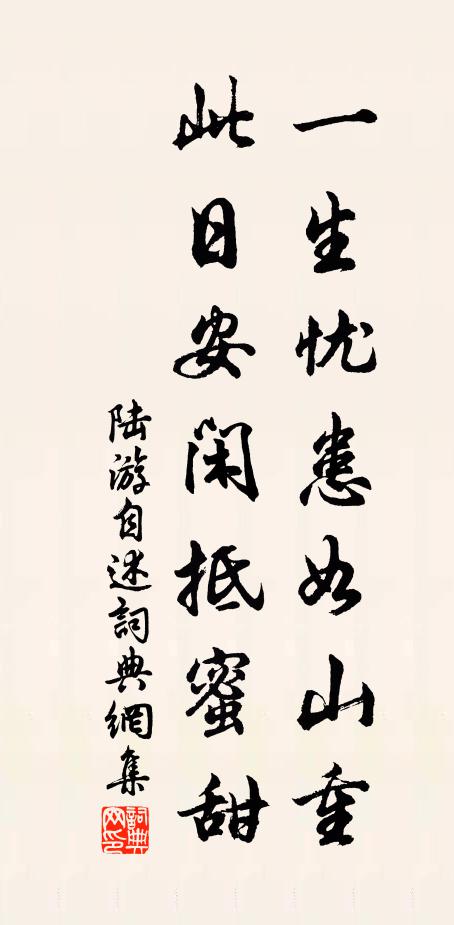 一生忧患如山重
此日安闲抵蜜甜
陆游自述詞典網集
詞典网印